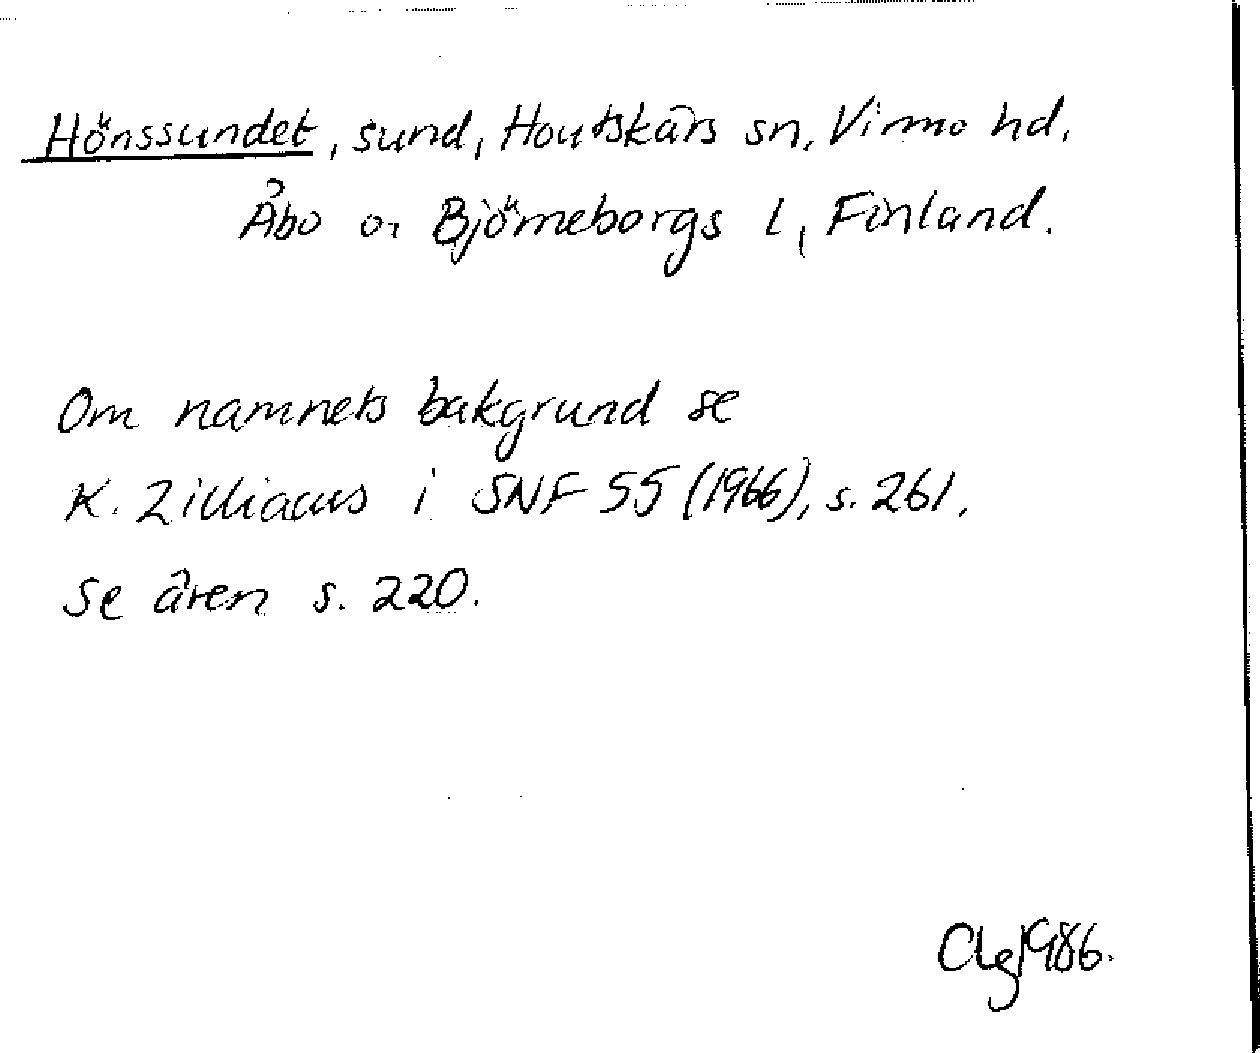 Hönssundet, sund, Houtskärs sn, Virmo hd,
Åbo o. Björneborgs l, Finland.
Om namnets bakgrund se
K. Zilliacus i SNF 55 (1966), s. 261.
Se även s. 220.
1986.